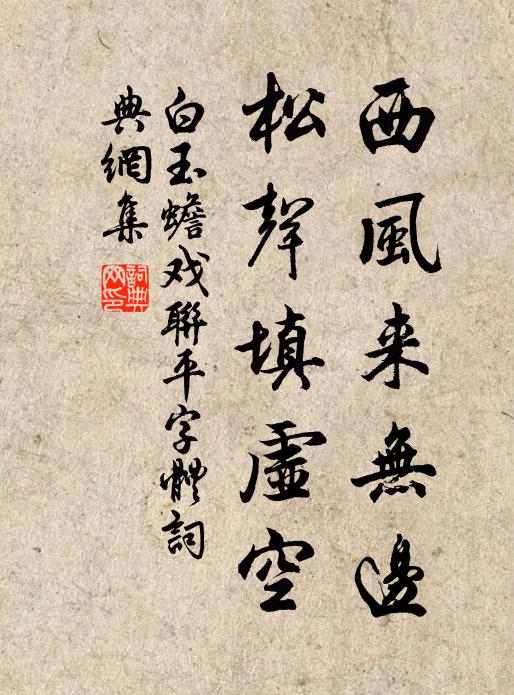 西風来無邊
松聲填虛空
白玉蟾戏聯平字體詞
典網集
詞典
网印